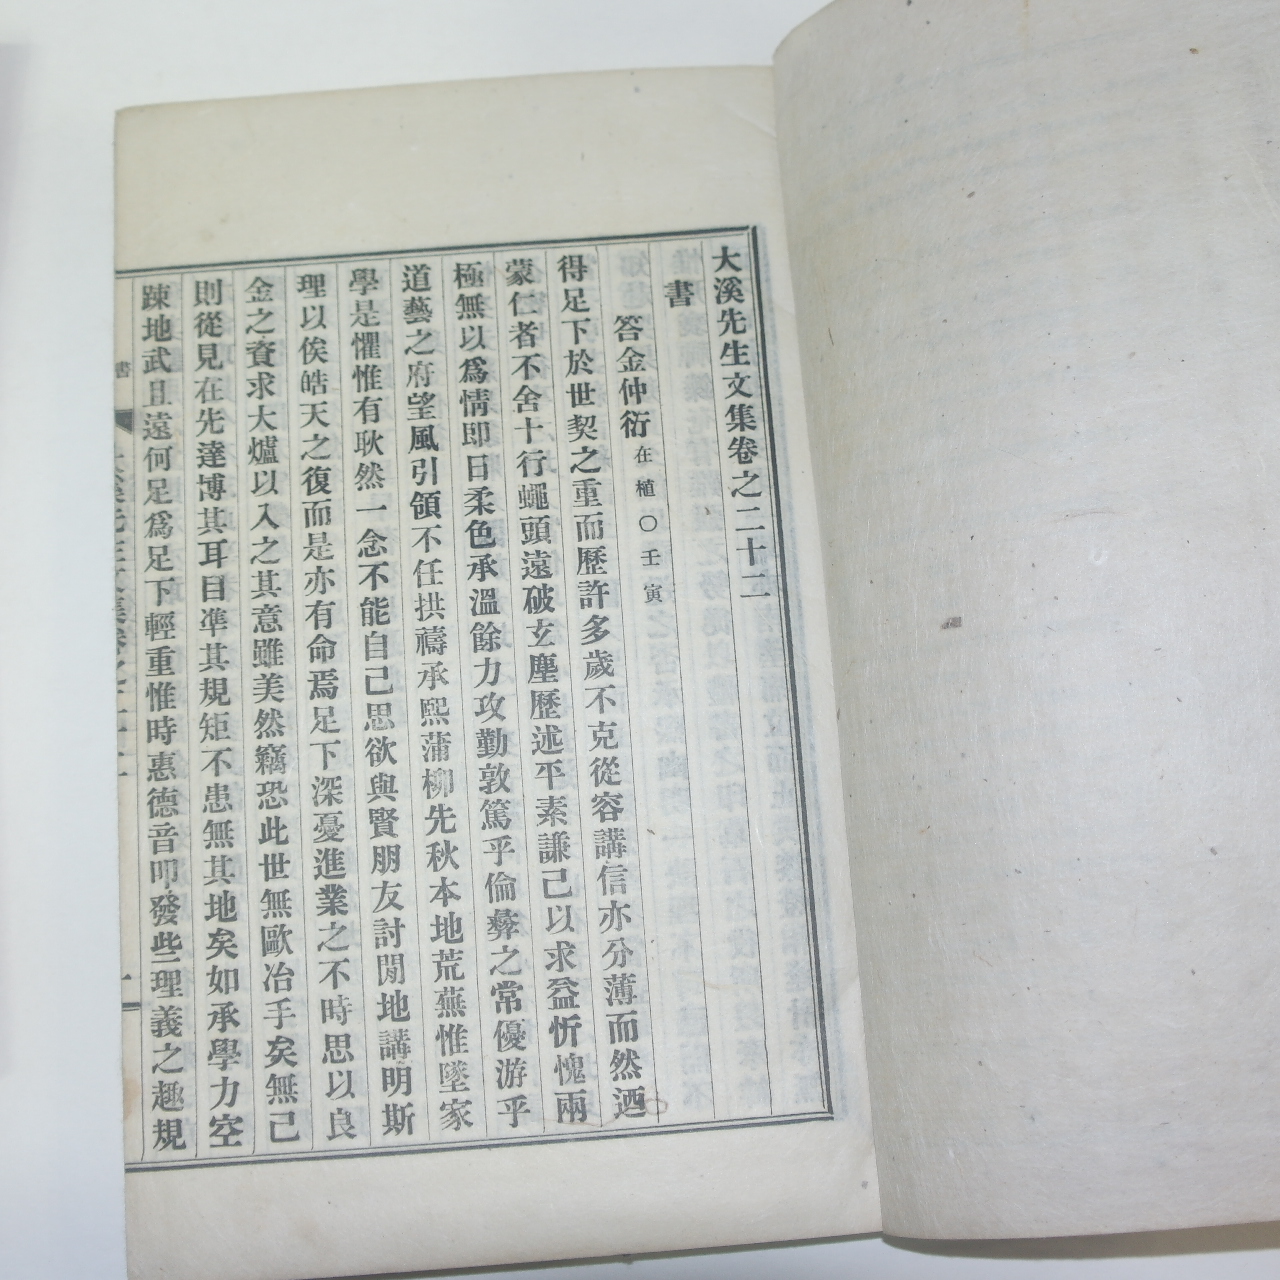 大溪先生文集卷之二十二
書
答金仲衍在植〇壬寅
得足下於世契之重而歷許多歲不克從容講信亦分薄而然迺
蒙仁者不舍十行蠅頭遠破玄塵歷述平素謙己以求益忻愧兩
極無以爲情即日柔色承溫餘力攻勤敦篤乎倫彝之常優游乎
道藝之府望風引領不任拱禱承熙蒲柳先秋本地荒蕪惟墜家
學是懼惟有耿然一念不能自己思欲與賢朋友討閒地講明斯
理以俟皓天之復而是亦有命焉足下深憂進業之不時思以良
金之資求大爐以入之其意雖美然竊恐此世無歐冶手矣無已
則從見在先達博其耳目準其規矩不患無其地矣如承學力空
踈地武且遠何足爲足下輕重惟時惠德音叩發些理義之趣規
書
大溪先生文集卷之二十二
一